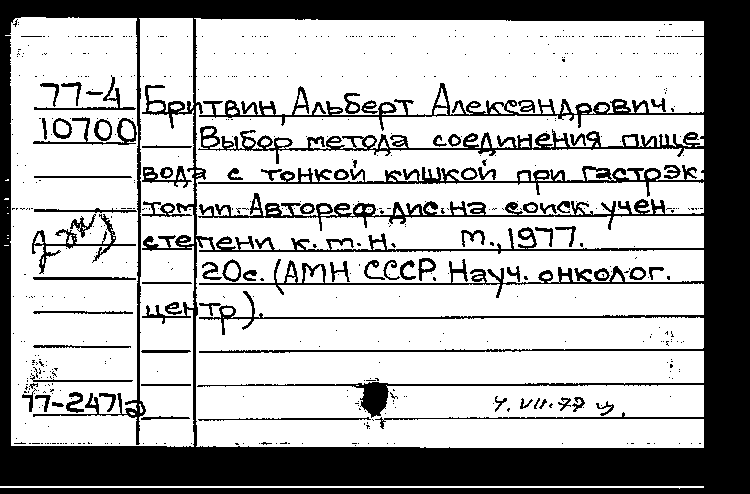 77-4 Бритвин, Альберт Александрович.
10700 Выбор метода соединения пище-
вода с тонкой кишкой при гастрэк-
томии. Автореф. дис. на соиск. учен.
степени к.т.н. М., 1977.
20с. (АМН СССР. Науч. онколог.
центр).
77-2471а
4.VII.77